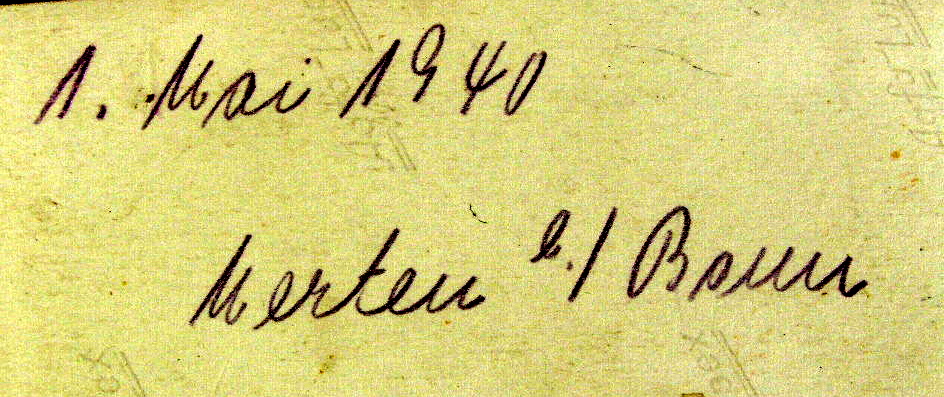 1. Mai 1940
Merten b./ Bonn